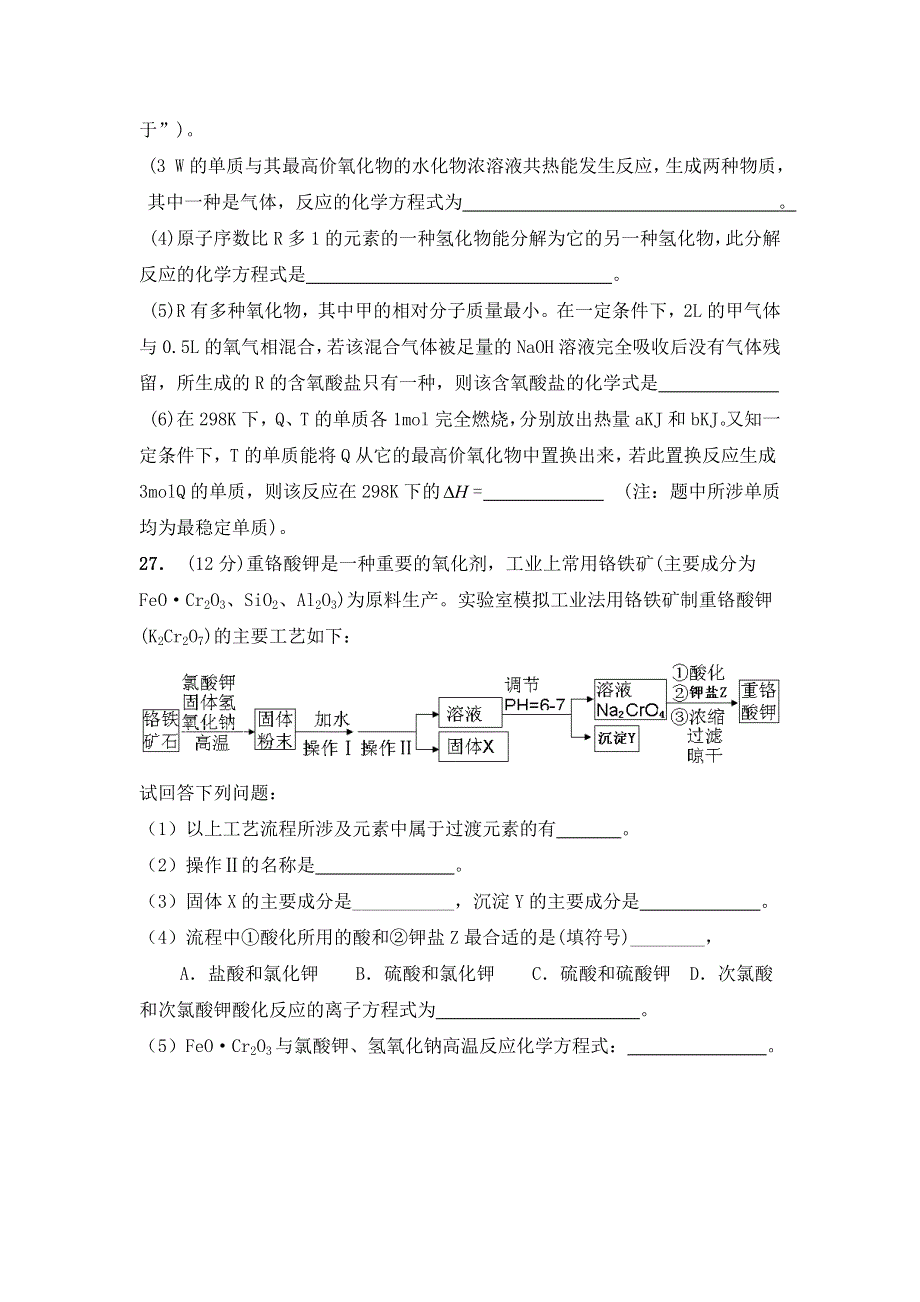 于”)。
(3 W的单质与其最高价氧化物的水化物浓溶液共热能发生反应,生成两种物质,
其中一种是气体, 反应的化学方程式为                。
(4)原子序数比 R 多 1 的元素的一种氢化物能分解为它的另一种氢化物,此分解
反应的化学方程式是                。
(5)R 有多种氧化物,其中甲的相对分子质量最小。在一定条件下,2L 的甲气体
与0.5L的氧气相混合,若该混合气体被足量的NaOH溶液完全吸收后没有气体残
留, 所生成的 R 的含氧酸盐只有一种, 则该含氧酸盐的化学式是
(6)在 298K 下,Q、T 的单质各 1mol 完全燃烧,分别放出热量 aKJ 和 bKJ。又知一
定条件下, T 的单质能将 Q 从它的最高价氧化物中置换出来, 若此置换反应生成
3molQ 的单质, 则该反应在 298K 下的ΔH=          (注: 题中所涉单质
均为最稳定单质)。
27. (12 分)重铬酸钾是一种重要的氧化剂, 工业上常用铬铁矿(主要成分为
FeO·Cr₂O₃、SiO₂、Al₂O₃)为原料生产。实验室模拟工业法用铬铁矿制重铬酸钾
(K₂Cr₂O₇)的主要工艺如下:
铬铁
矿石
氯酸钾
固体氢
氧化钠
高温
固体
粉末
加水
操作Ⅰ
操作Ⅱ
溶液
固体X
调节
PH=6-7
溶液
Na₂CrO₄
沉淀Y
①酸化
②钾盐Z
③浓缩
过滤
晾干
重铬
酸钾
试回答下列问题:
(1)以上工艺流程所涉及元素中属于过渡元素的有______。
(2)操作Ⅱ的名称是____________。
(3)固体 X 的主要成分是__________, 沉淀 Y 的主要成分是__________。
(4)流程中①酸化所用的酸和②钾盐 Z 最合适的是(填符号)________,
A. 盐酸和氯化钾 B. 硫酸和氯化钾 C. 硫酸和硫酸钾 D. 次氯酸
和次氯酸钾酸化反应的离子方程式为__________________。
(5)FeO·Cr₂O₃与氯酸钾、氢氧化钠高温反应化学方程式: ____________。